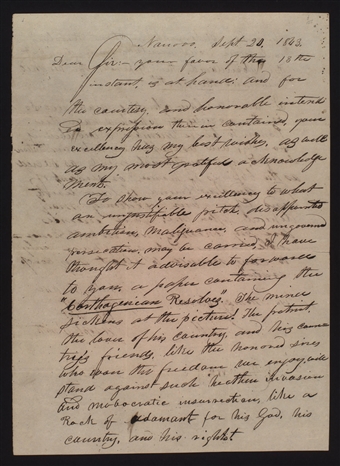 Nauvoo, Sept 20, 1843.
Dear Sir:— your favor of the 13th
instant, is at hand: and for
the courtesy, and honorable intend
ed expression therein contained, your
excellency has my best wishes, as well
as my most grateful acknowledge
ment.
To show your excellency to what
an unjustifiable pitch, disappointed
ambition, malignancy and ungoverned
may be carried, I have
thought it advisable to forward
to you, a paper containing the
"Carthagenian Resolves. The mind
sickens at the picture. The patriot,
the lover of his country, and his coun
try's friends, like the honored sires
who won the freedom we enjoy, will
stand against such heathen invasion
and mobocratic insurrection, like a
Rock of adamant for his God, his
country, and his rights.